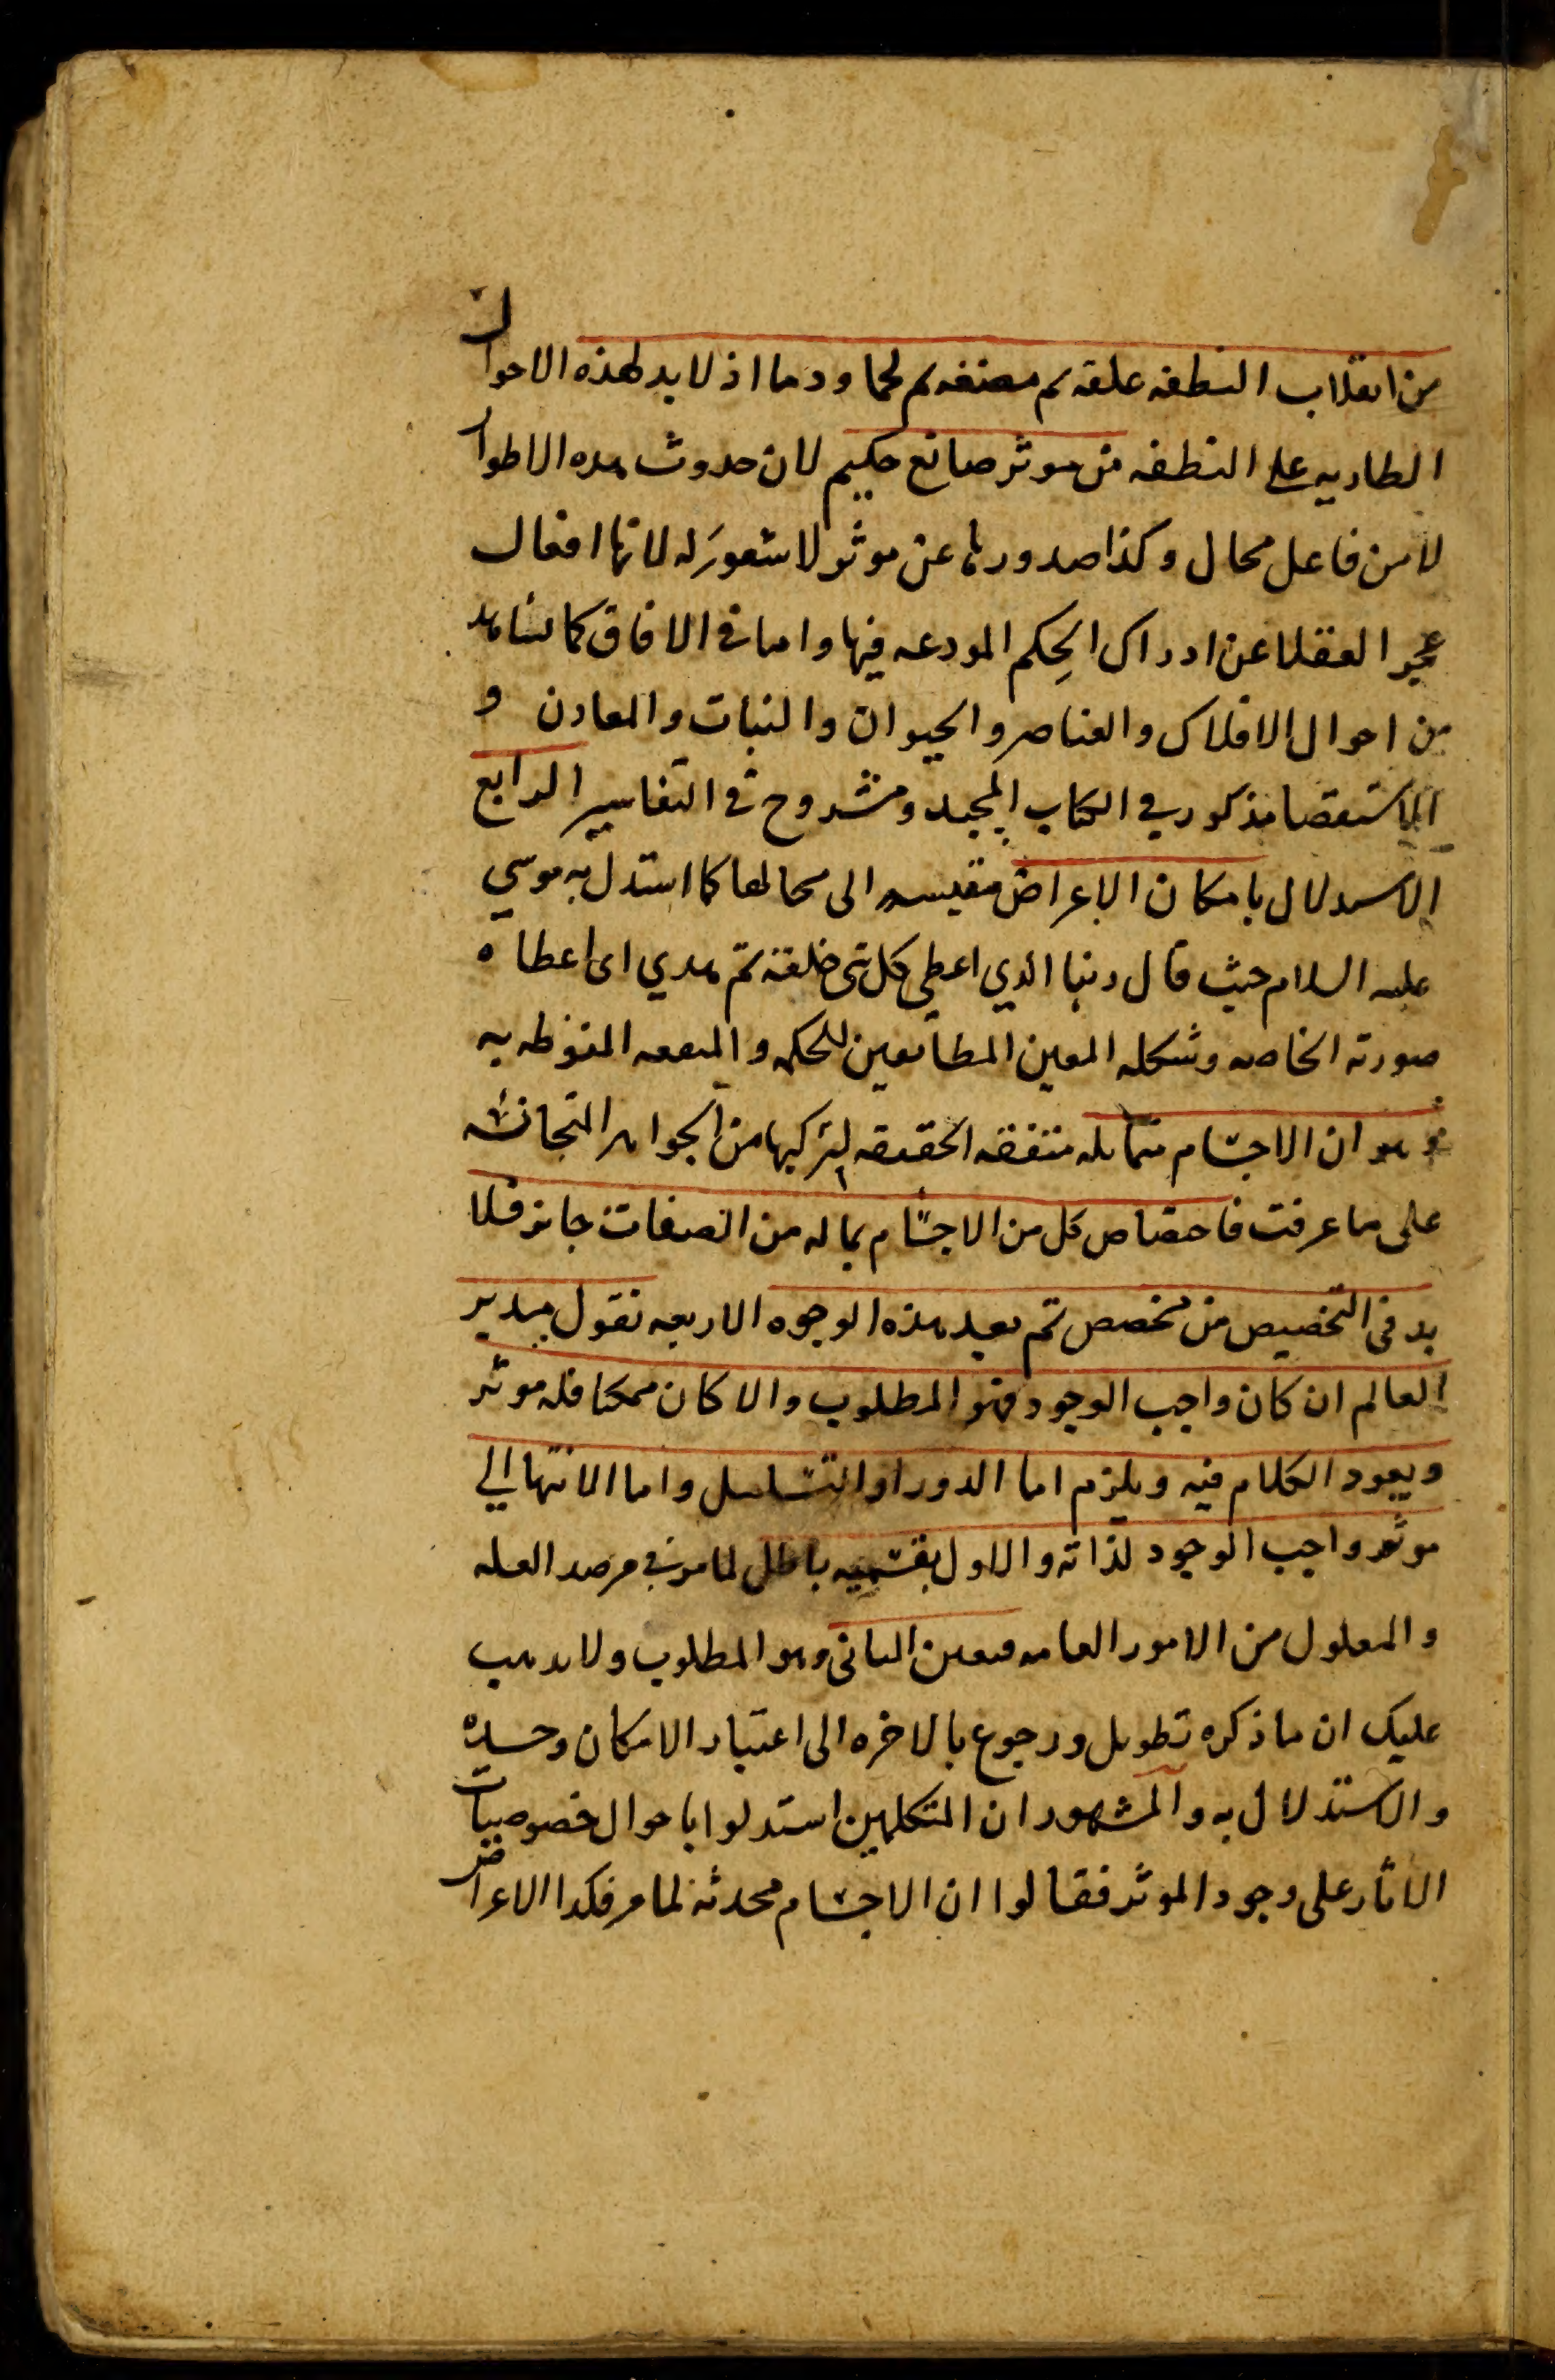 من انقلاب النطفه علقه ثم مضغه ثم لحما ودما اذ لابد لهذه الاحوال
الطاريه على النطفه من موثر صانع حكيم لان حدوث هذه الاطوار
لا من فاعل محال وكذا صدورها عن موثر لا شعور له لانها افعال
عجز العقلا عن ادراك الحِكم المودعه فيها واما في الافاق كما نشاهد
من احوال الافلاك والعناصر والحيوان والنبات والمعادن و
الاستقصا مذكور في الكتاب المجيد ومشروح في التفاسير الرابع
الاستدلال بامكان الاعراض مقيسه الى محالها كما استدل به موسي
عليه السلام حيث قال ربنا الذي اعطي كل شي خلقه ثم هدي اى اعطاه
صورته الخاصه وشكله المعين المطابقين للحكمه والمنفعه المنوطه به
وهو ان الاجسام متماثله متفقه الحقيقه لتركبها من الجواهر المتجانسه
على ما عرفت فاختصاص كل من الاجسام بما له من الصفات جايز فلا
بد في التخصيص من مخصص ثم بعد هذه الوجوه الاربعه نقول مدبر
العالم ان كان واجب الوجود فهو المطلوب والا كان ممكنا فله موثر
ويعود الكلام فيه ويلزم اما الدور او التسلسل واما الانتها الي
موثر واجب الوجود لذاته والاول بقسميه باطل لما مر في مرصد العله
والمعلول من الامور العامه فتعين الثانى وهو المطلوب ولا يذهب
عليك ان ما ذكره تطويل ورجوع بالاخره الى اعتبار الامكان وحده
والاستدلال به والمشهور ان المتكلمين استدلوا باحوال خصوصيات
الاثار على وجود الموثر فقالوا ان الاجسام محدثه لما مر فكذا الاعراض